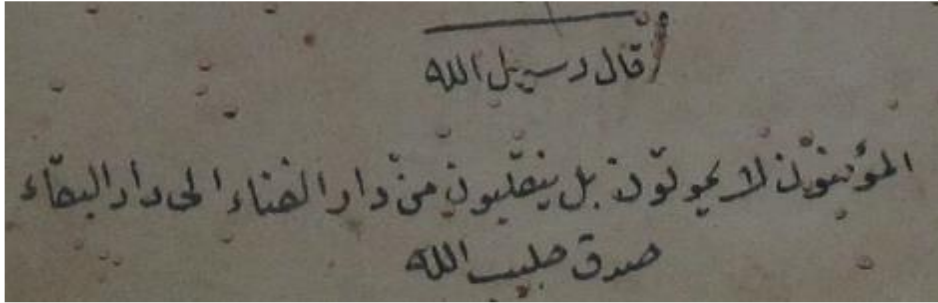 قال رسول الله
المؤمنون لا يموتون بل ينقلبون من دار الفناء الى دار البقاء
صدق حبيب الله